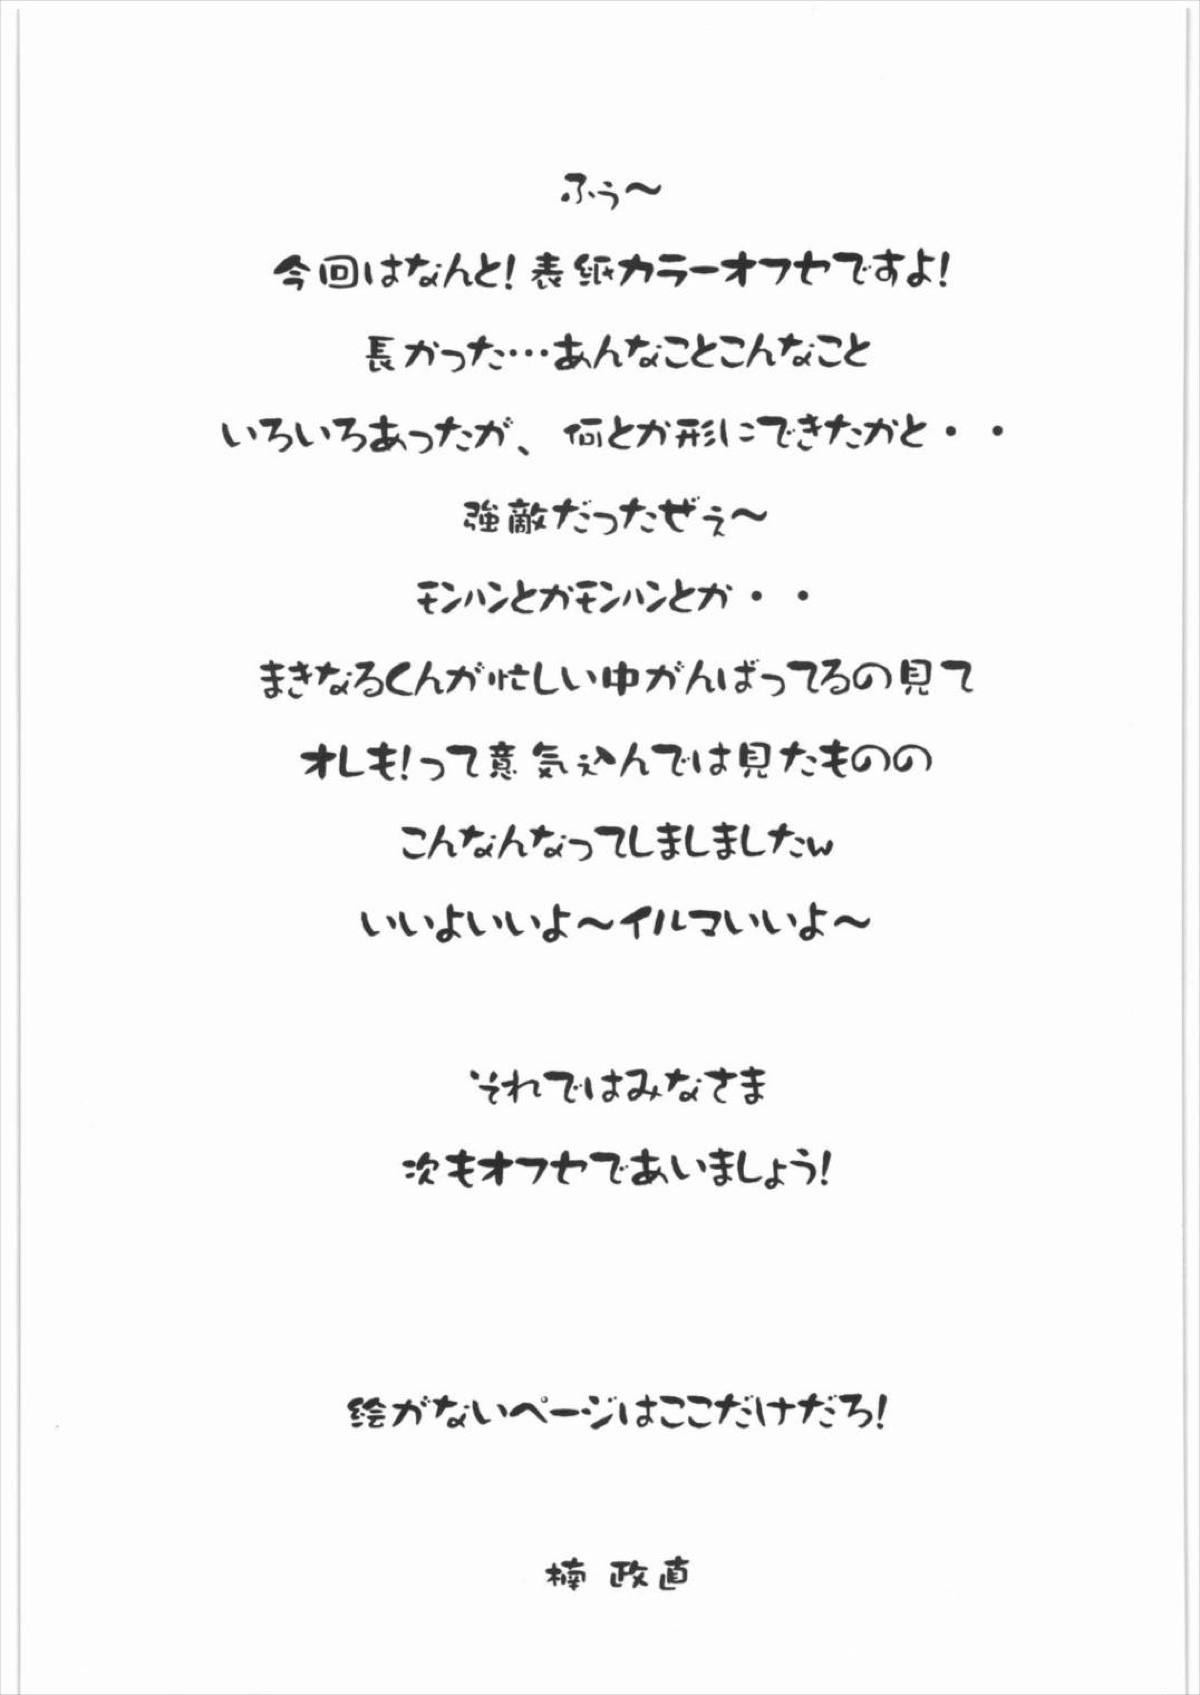 ふぅ～
今回はなんと！表紙カラーオフセですよ！
長かった…あんなことこんなこと
いろいろあったが、何とか形にできたかと・・
強敵だったぜぇ～
モンハンとかモンハンとか・・
まきなるくんが忙しい中がんばってるの見て
オレも！って意気込んでは見たものの
こんなんなってしましましたw
いいよいいよ～イルマいいよ～
それではみなさま
次もオフセであいましょう！
絵がないページはここだけだろ！
楠 政直